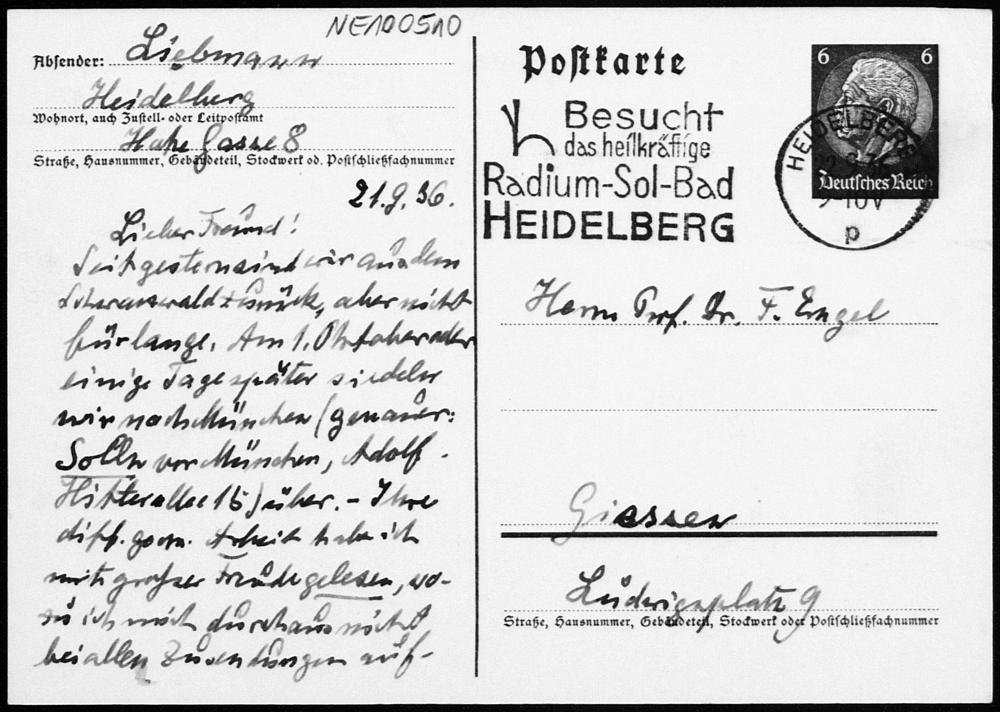 NE100510
Absender: Liebmann
Heidelberg
Wohnort, auch Zustell- oder Leitpostamt
gasse 8
Straße, Hausnummer, Gebäudeteil, Stockwerk od. Postschließfachnummer
21.9.36.
Lieber Freund!
Seit gestern sind wir aus dem
Schwarzwald zurück, aber nicht
für lange. Am 1. Oktober oder
einige Tage später siedeln
wir nach München (genauer:
Solln vor München, Adolf-
Hitlerallee 15) über. – Ihre
diff. geom. Arbeit habe ich
mit großer Freude gelesen, wo-
zu ich mich durchaus nicht
bei allen Zusendungen auf-
Postkarte
Besucht
das heilkräftige
Radium-Sol-Bad
HEIDELBERG
6 6
Deutsches Reich
HEIDELBERG
9-10V
p
Herrn Prof. Dr. F. Engel
Giessen
Ludwigsplatz 9
Straße, Hausnummer, Gebäudeteil, Stockwerk oder Postschließfachnummer